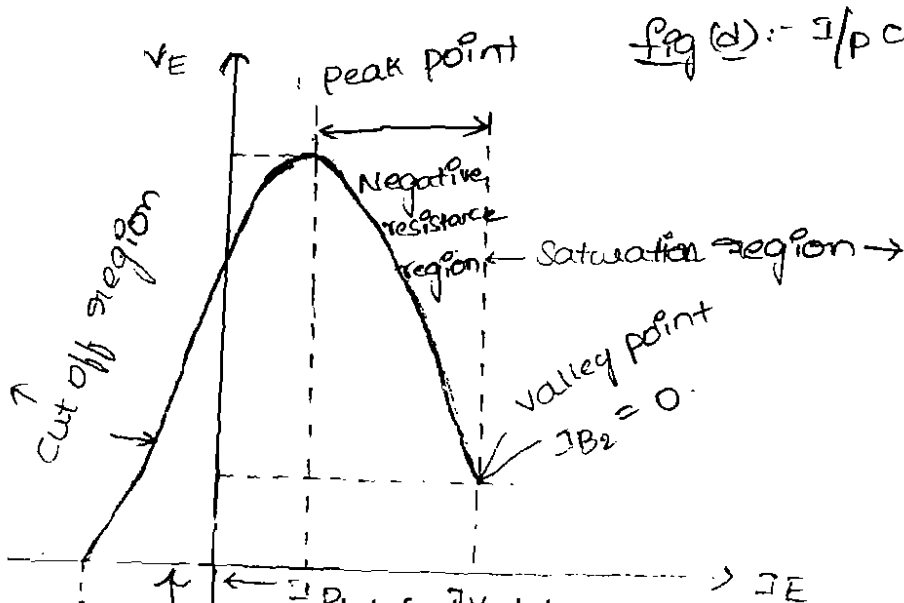 fig (d):- I/P C
VE
Peak point
Negative
resistance
region
Saturation region
Cut off region
Valley point
IB2 = 0.
IP
IV
IE